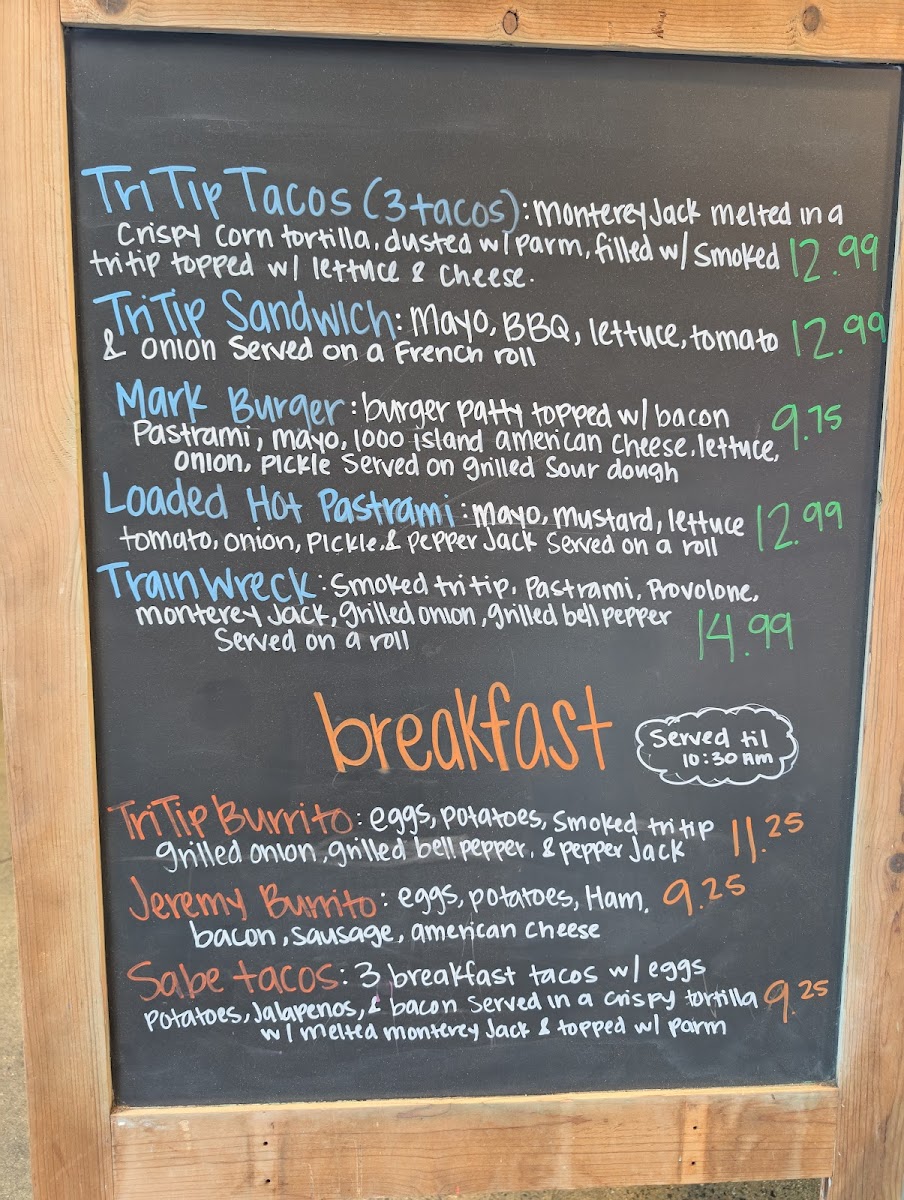 Tri Tip Tacos (3 tacos): Monterey Jack melted in a
Crispy corn tortilla, dusted w/ parm, filled w/ smoked 12.99
tritip topped w/ lettuce & cheese.
TriTip Sandwich: Mayo, BBQ, lettuce, tomato 12.99
& onion Served on a French roll
Mark Burger: burger patty topped w/ bacon 9.75
Pastrami, mayo, 1000 island american cheese, lettuce,
onion, pickle Served on grilled sour dough
Loaded Hot Pastrami: mayo, mustard, lettuce 12.99
tomato, onion, pickle, & pepper Jack served on a roll
Train Wreck: Smoked tri tip, Pastrami, Provolone,
monterey Jack, grilled onion, grilled bell pepper 14.99
Served on a roll
breakfast
Served til
10:30 AM
TriTip Burrito: eggs, potatoes, smoked tritip 11.25
grilled onion, grilled bell pepper, & pepper Jack
Jeremy Burrito: eggs, potatoes, Ham, 9.25
bacon, sausage, american cheese
Sabe tacos: 3 breakfast tacos w/ eggs
potatoes, Jalapenos, & bacon served in a crispy tortilla 9.25
w/ melted monterey Jack & topped w/ parm